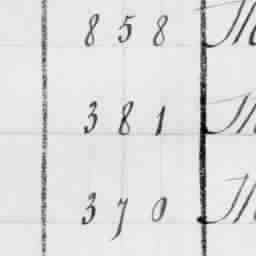 858
381
370